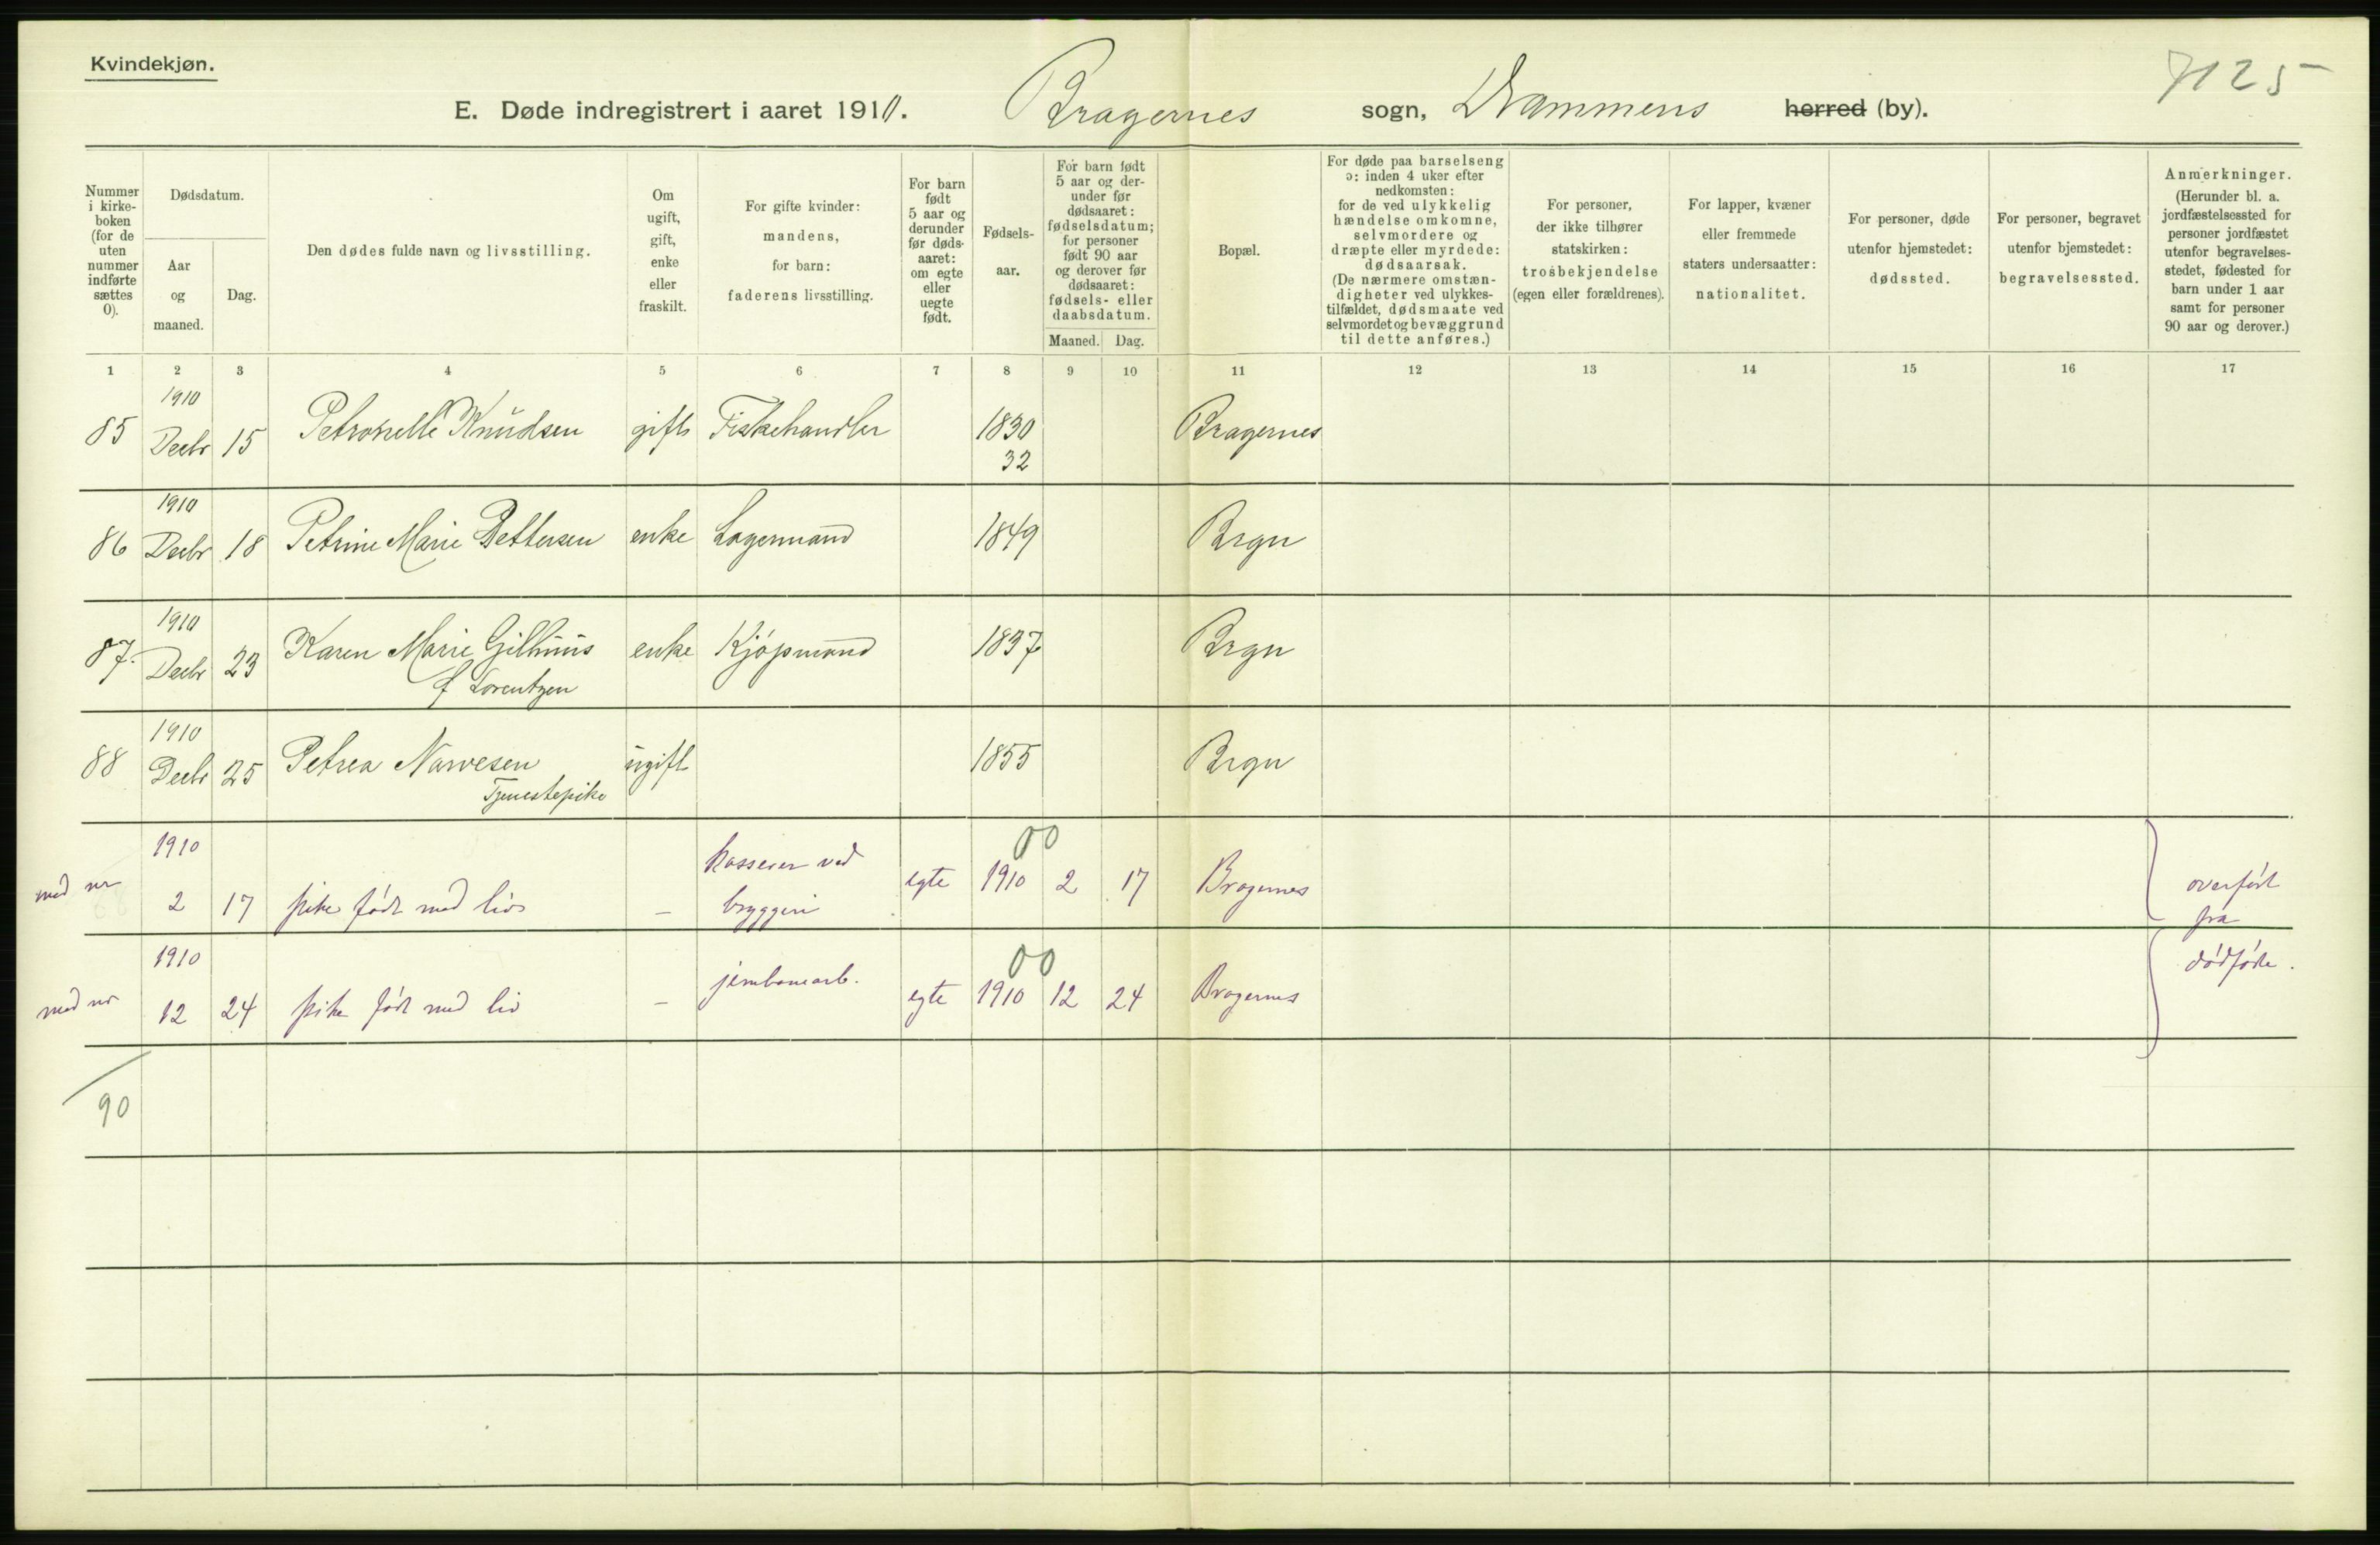 Kvindekjøn.
7125
E. Døde indregistrert i aaret 1910. Bragernes sogn, Drammens herred (by).
Nummer i kirke-boken (for de uten nummer indførte sættes 0).
Dødsdatum.
Aar og maaned.
Dag.
Den dødes fulde navn og livsstilling.
Om ugift, gift, enke eller fraskilt.
For gifte kvinder: mandens, for barn: faderens livsstilling.
For barn født 5 aar og derunder før døds-aaret: om egte eller uegte født.
Fødsels-aar.
For barn født 5 aar og der-under før dødsaaret: fødselsdatum; for personer født 90 aar og derover før dødsaaret: fødsels- eller daabsdatum.
Maaned. Dag.
Bopæl.
For døde paa barselseng ɔ: inden 4 uker efter nedkomsten: for de ved ulykkelig hændelse omkomne, selvmordere og dræpte eller myrdede: dødsaarsak. (De nærmere omstæn-digheter ved ulykkes-tilfældet, dødsmaate ved selvmordet og bevæggrund til dette anføres.)
For personer, der ikke tilhører statskirken: trosbekjendelse (egen eller forældrenes).
For lapper, kvæner eller fremmede staters undersaatter: nationalitet.
For personer, døde utenfor hjemstedet: dødssted.
For personer, begravet utenfor hjemstedet: begravelsessted.
Anmerkninger. (Herunder bl. a. jordfæstelsessted for personer jordfæstet utenfor begravelses-stedet, fødested for barn under 1 aar samt for personer 90 aar og derover.)
1 2 3 4 5 6 7 8 9 10 11 12 13 14 15 16 17
1910
85 Decbr 15 Petronelle Knudsen gift Fiskehandler 1830 Bragernes
32
1910
86 Decbr 18 Petrine Marie Pettersen enke Lagermand 1849 Brgn
1910
87. Decbr 23 Karen Marie Gilhuus enke Kjøpmand 1837 Brgn
f Lorentzen
1910
88 Decbr 25 Petrea Narvesen ugift 1855 Brgn
Tjenestepike
1910 kasserer ved 00
med nr 2 17 pike født med liv – bryggeri egte 1910 2 17 Bragernes overført
fra
1910 jernbanearb. 00 dødføde.
med nr 12 24 pike født med liv – egte 1910 12 24 Bragernes
90